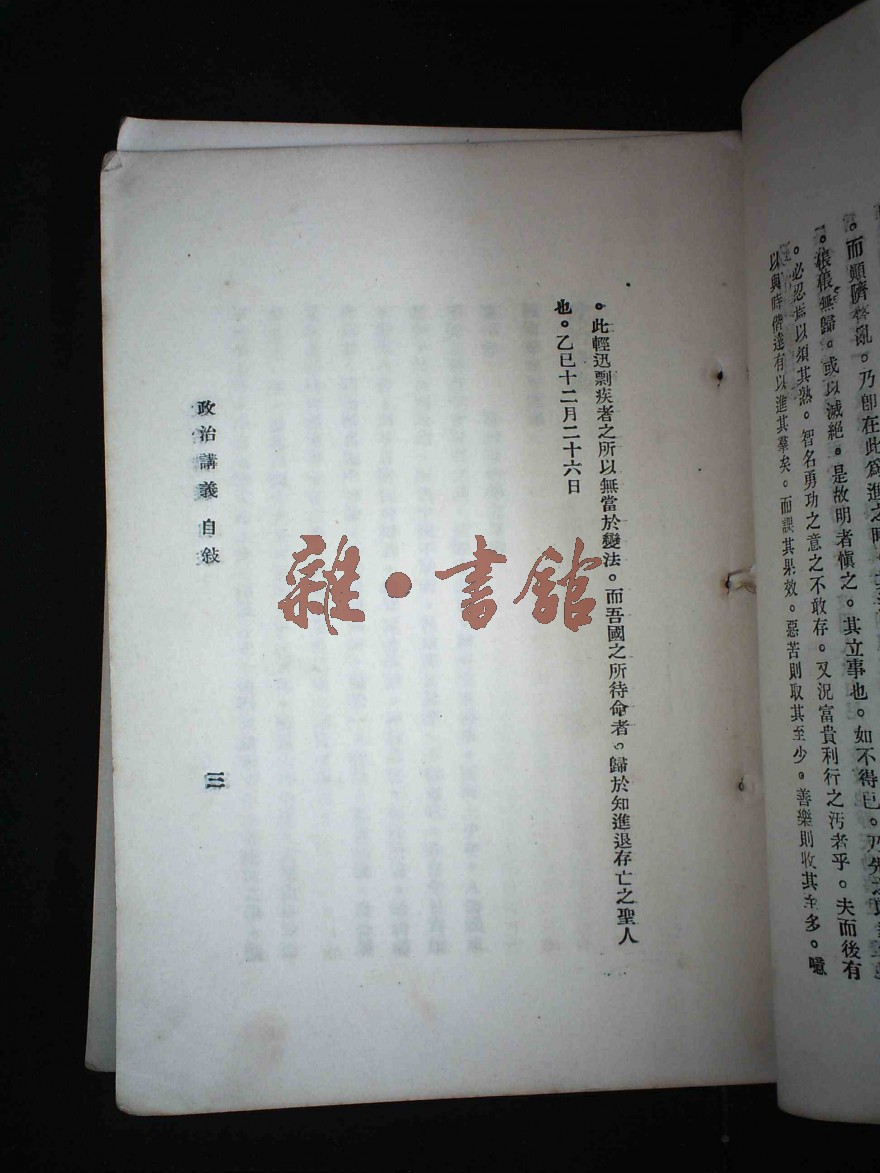 。而顛隮瞀亂。乃卽在此爲進之時
。猖猖無歸。或以滅絕。是故明者愼之。其立事也。如不得已。乃先之以
。必忍焉以須其熟。智名勇功之意之不敢存。又況富貴利行之污者乎。夫而後有
以與時偕達有以進其羣矣。而課其果效。惡苦則取其至少。善樂則收其至多。噫
。此輕迅剽疾者之所以無當於變法。而吾國之所待命者。歸於知進退存亡之聖人
也。乙巳十二月二十六日
政治講義 自敍
三
雜·書館